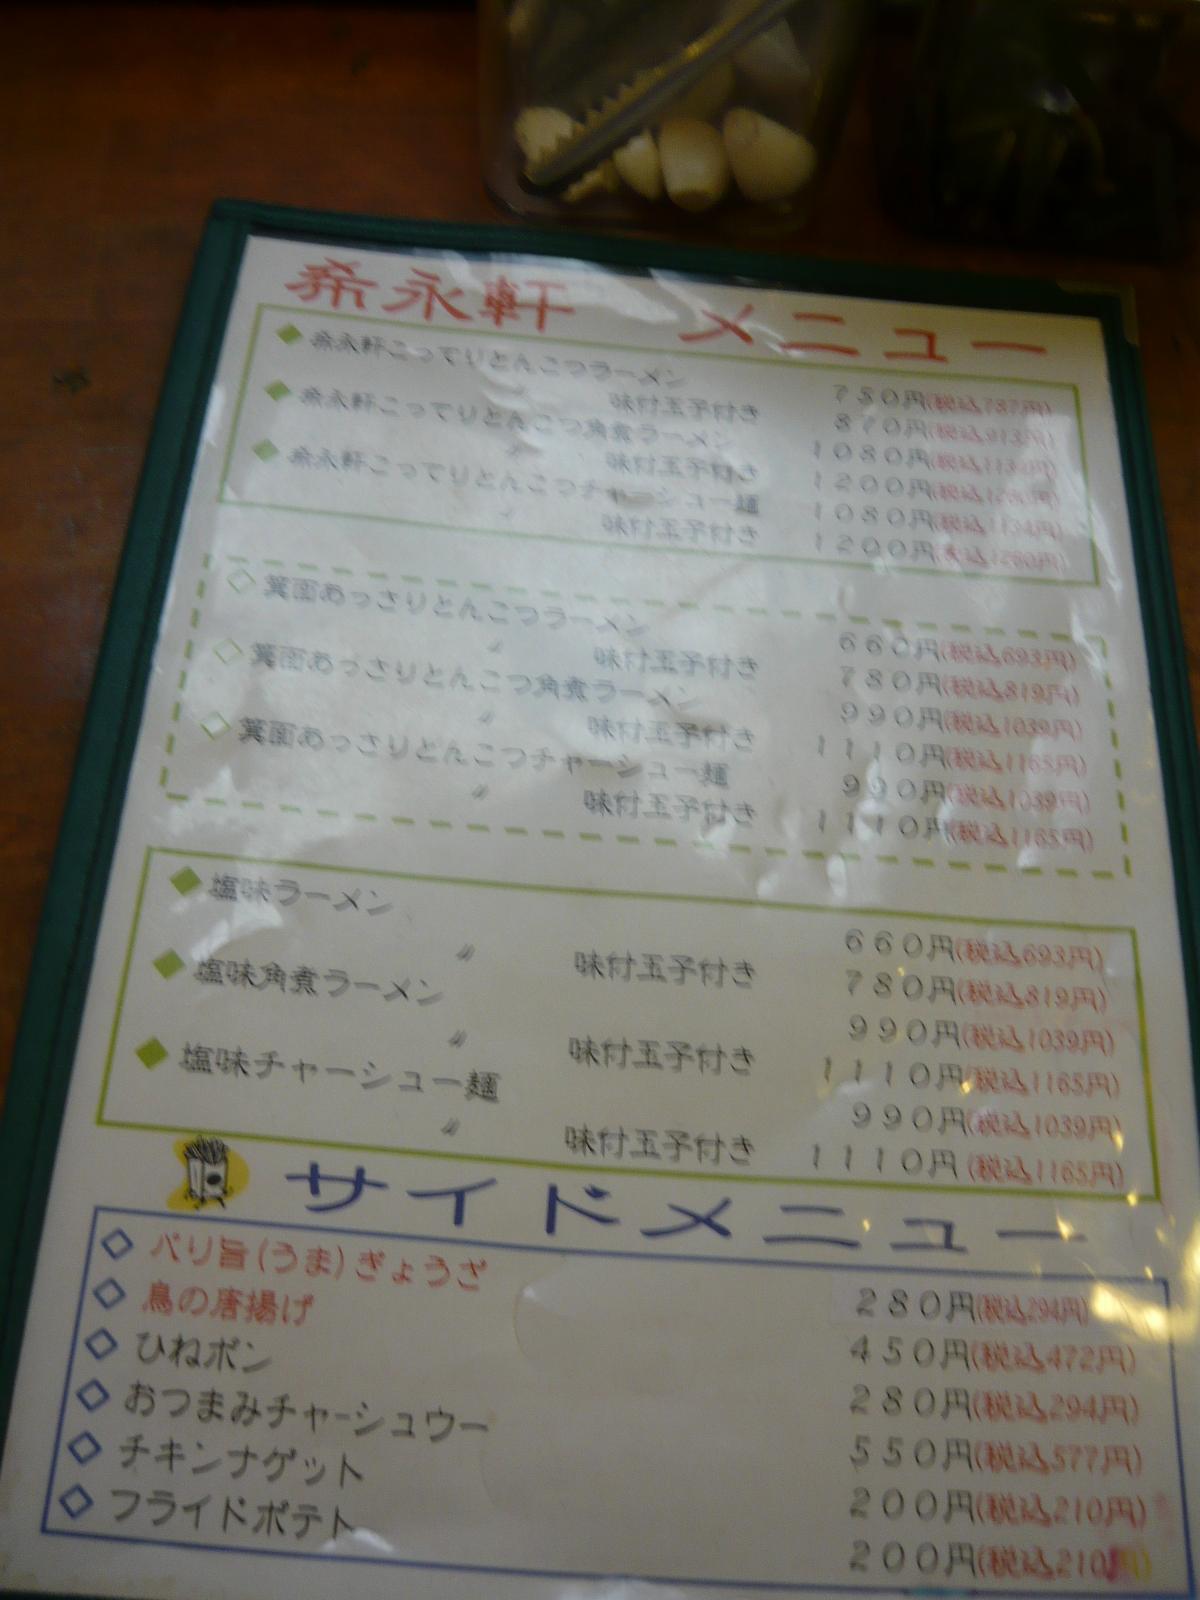 希永軒 メニュー
◆希永軒こってりとんこつラーメン 750円(税込787円)
〃 味付玉子付き 870円(税込913円)
◆希永軒こってりとんこつ角煮ラーメン 1080円(税込1134円)
〃 味付玉子付き 1200円(税込1260円)
◆希永軒こってりとんこつチャーシュー麺 1080円(税込1134円)
〃 味付玉子付き 1200円(税込1260円)
◇箕面あっさりとんこつラーメン 660円(税込693円)
〃 味付玉子付き 780円(税込819円)
◇箕面あっさりとんこつ角煮ラーメン 990円(税込1039円)
〃 味付玉子付き 1110円(税込1165円)
◇箕面あっさりとんこつチャーシュー麺 990円(税込1039円)
〃 味付玉子付き 1110円(税込1165円)
◆塩味ラーメン 660円(税込693円)
〃 味付玉子付き 780円(税込819円)
◆塩味角煮ラーメン 990円(税込1039円)
〃 味付玉子付き 1110円(税込1165円)
◆塩味チャーシュー麺 990円(税込1039円)
〃 味付玉子付き 1110円(税込1165円)
サイドメニュー
◇パリ旨(うま)ぎょうざ 280円(税込294円)
◇鳥の唐揚げ 450円(税込472円)
◇ひねポン 280円(税込294円)
◇おつまみチャーシュウー 550円(税込577円)
◇チキンナゲット 200円(税込210円)
◇フライドポテト 200円(税込210円)